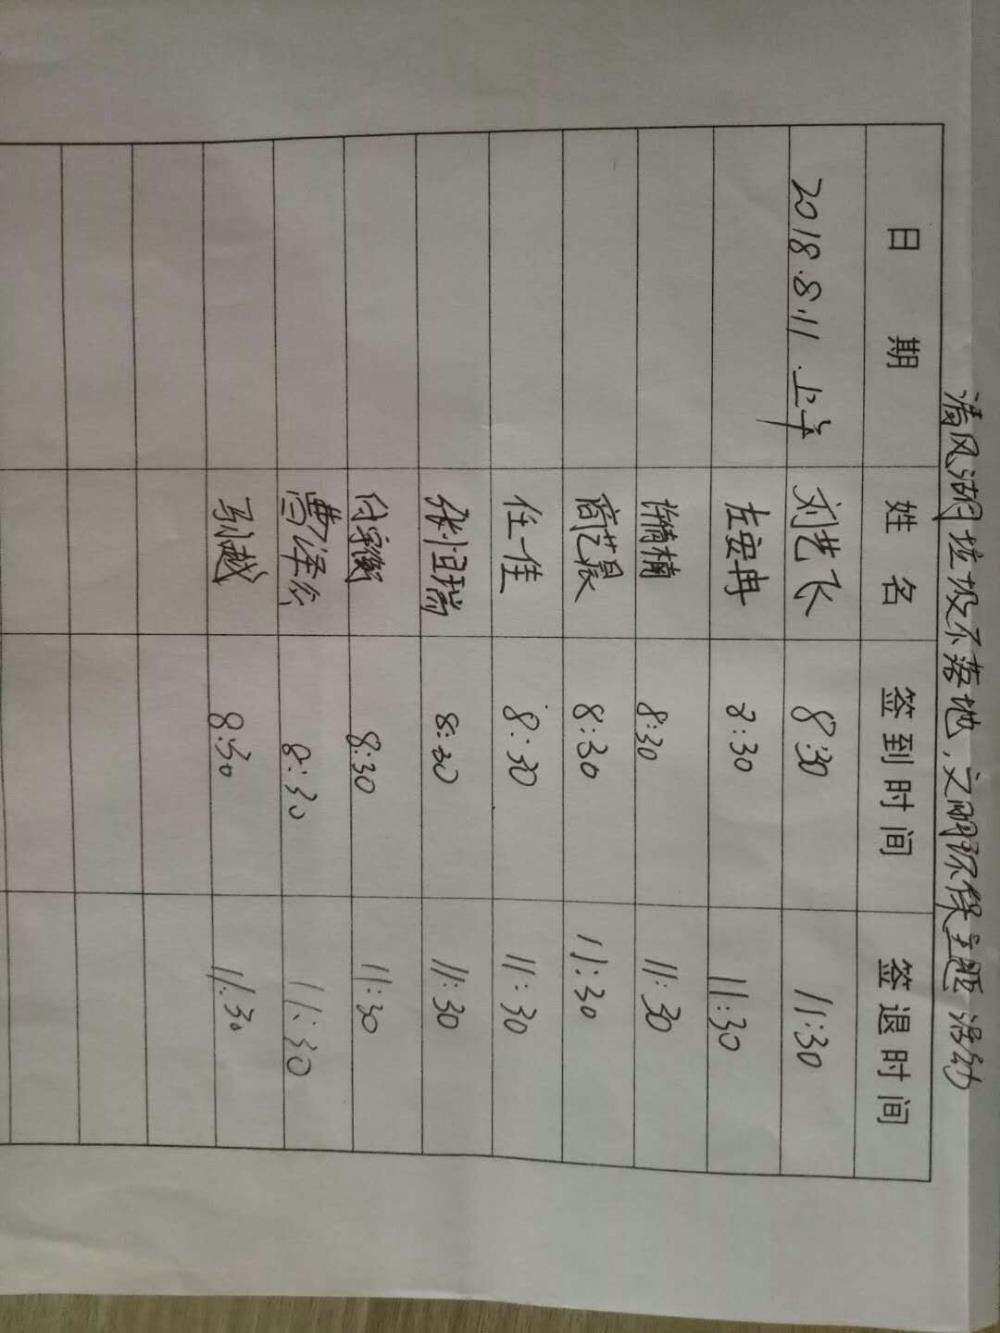 清风湖垃圾不落地，文明环保主题活动
日期 姓名 签到时间 签退时间
2018.8.11.上午 刘艺飞 8:30 11:30
左安冉 8:30 11:30
8:30 11:30
商艺晨 8:30 11:30
任一佳 8:30 11:30
张恒瑞 8:30 11:30
付宇衡 8:30 11:30
8:30 11:30
马越 8:30 11:30